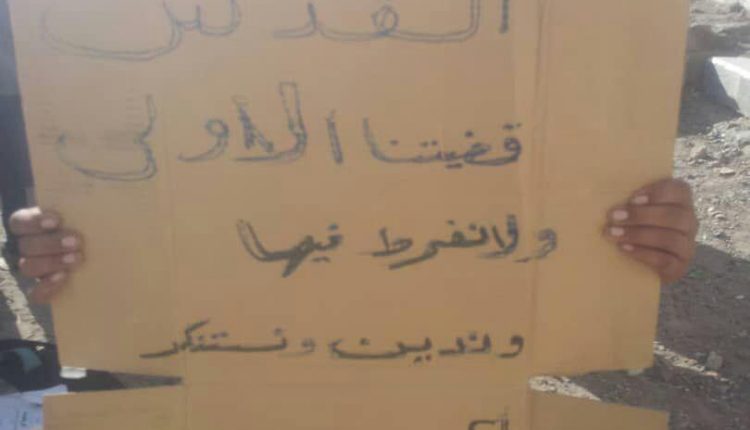 القدس
قضيتنا الاولى
ولانفرط فيها
وندين ونستنكر